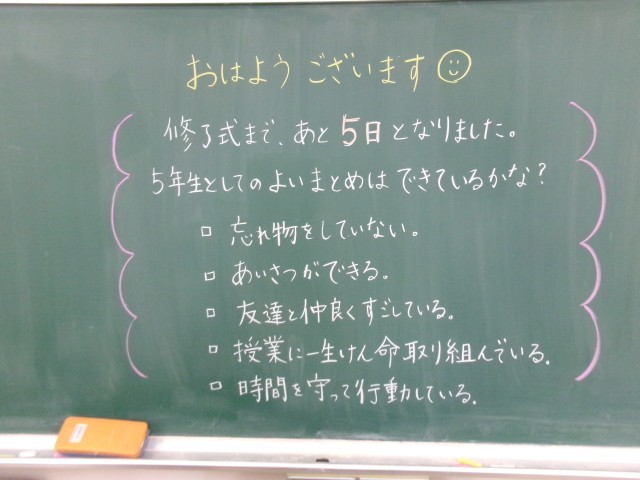 おはようございます
修了式まで、あと5日となりました。
5年生としてのよいまとめはできているかな?
□ 忘れ物をしていない。
□ あいさつができる。
□ 友達と仲良くすごしている。
□ 授業に一生けん命取り組んでいる。
□ 時間を守って行動している。